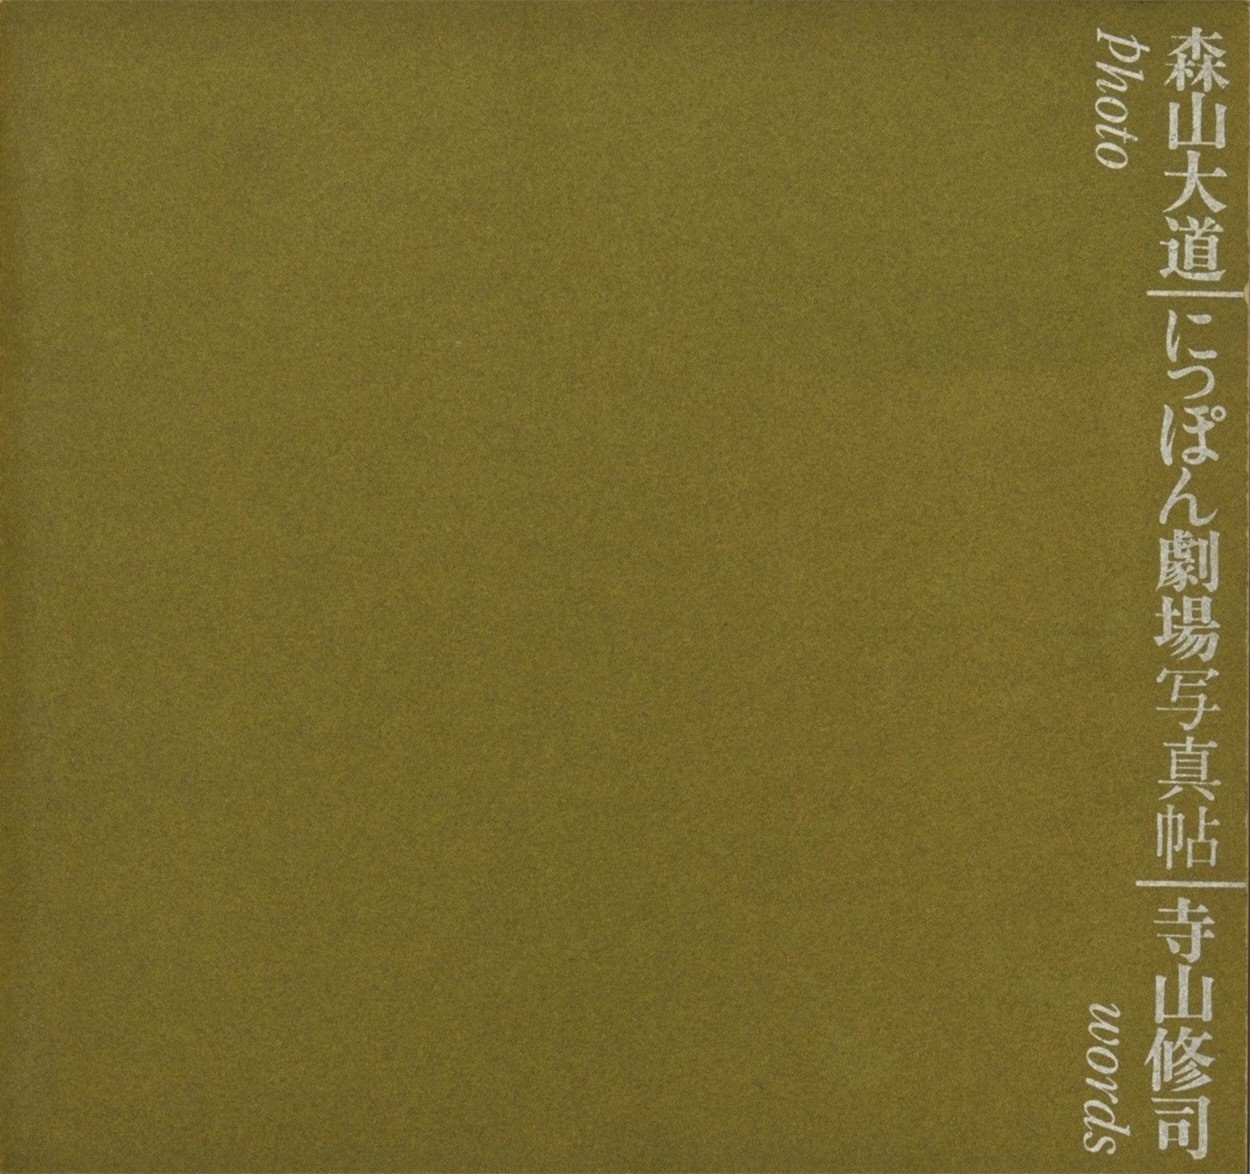 森山大道|にっぽん劇場写真帖|寺山修司
Photo
words